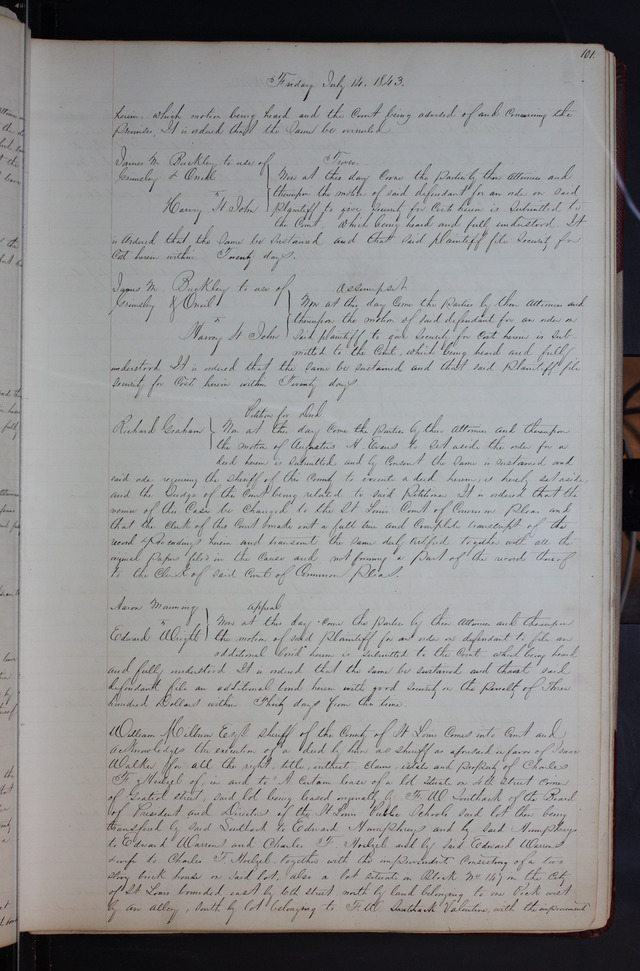 101.
Friday July 14. 1843.
herein. which motion being heard and the Court being advised of and concerning the
premises, It is ordered that the same be overruled
James M. Buckley to use of Trover
Grimsley & Oneil Now at this day come the parties by their attornies and
vs thereupon the motion of said defendant for an order on said
Harvey St John plaintiff to give security for Costs herein is submitted to
the Court, which being heard and fully understood. It
is ordered that the same be sustained and that said plaintiff file security for
Cost herein within Twenty days.
James M. Buckley to use of assumpsit
Grimsley & Oneil Now at this day Come the parties by their attornies and
vs thereupon the motion of said defendant for an order on
Harvey St John Said plaintiff to give security for Cost herein is sub-
mitted to the Court, which being heard and fully
understood It is ordered that the same be sustained and that said Plaintiff file
security for Cost herein within Twenty days
Petition for Deed
Richard Graham Now at this day come the parties by their attornies and thereupon
the motion of Augustus H. Evans to set aside the order for a
deed herein is submitted and by Consent the same is sustained and
said order requiring the sheriff of this County to execute a deed herein, is hereby set aside,
and the Judge of the Court being related to said Petitioner It is ordered that the
venue of this Case be changed to the St Louis Court of Common Pleas and
that the clerk of this Court make out a full true and Complete transcript of the
record & proceedings herein and transmit the same duly certified together with all the
original papers filed in the Cause and not forming a part of the record thereof
to the Clerk of said Court of Common Pleas.
Aaron Manning appeal
vs Now at this day come the parties by their attornies and thereupon
Edward Wright the motion of said Plaintiff for an order on defendant to file an
additional bond herein is submitted to the Court which being heard
and fully understood It is ordered that the same be sustained and that said
defendant file an additional bond herein with good security in the Penalty of Three
hundred Dollars within Thirty days from this time.
William Milburn Esqr sheriff of the County of St Louis Comes into Court and
acknowledges the execution of a deed by him as sheriff as aforesaid in favor of Isaac
Walker for all the right, title, interest, claim, estate and property of Charles
F. Hoelzel of in and to A certain lease of a lot situate on 4th street corner
of Gratiot street, said lot being leased originally by F. W. Southack of the Board
of President and Directors of the St Louis Public Schools said lot then being
transferred by said Southack to Edward Humphreys and by said Humphreys
to Edward Warren and Charles F. Hoelzel and by said Edward Warren
& wife to Charles F. Hoelzel together with the improvements Consisting of a two
story brick house on said lot, also a lot situate in Block No 147 in the City
of St Louis bounded east by 6th street north by land belonging to one Peck west
by an alley, south by lot belonging to F. W. Southack Valentine, with the improvement